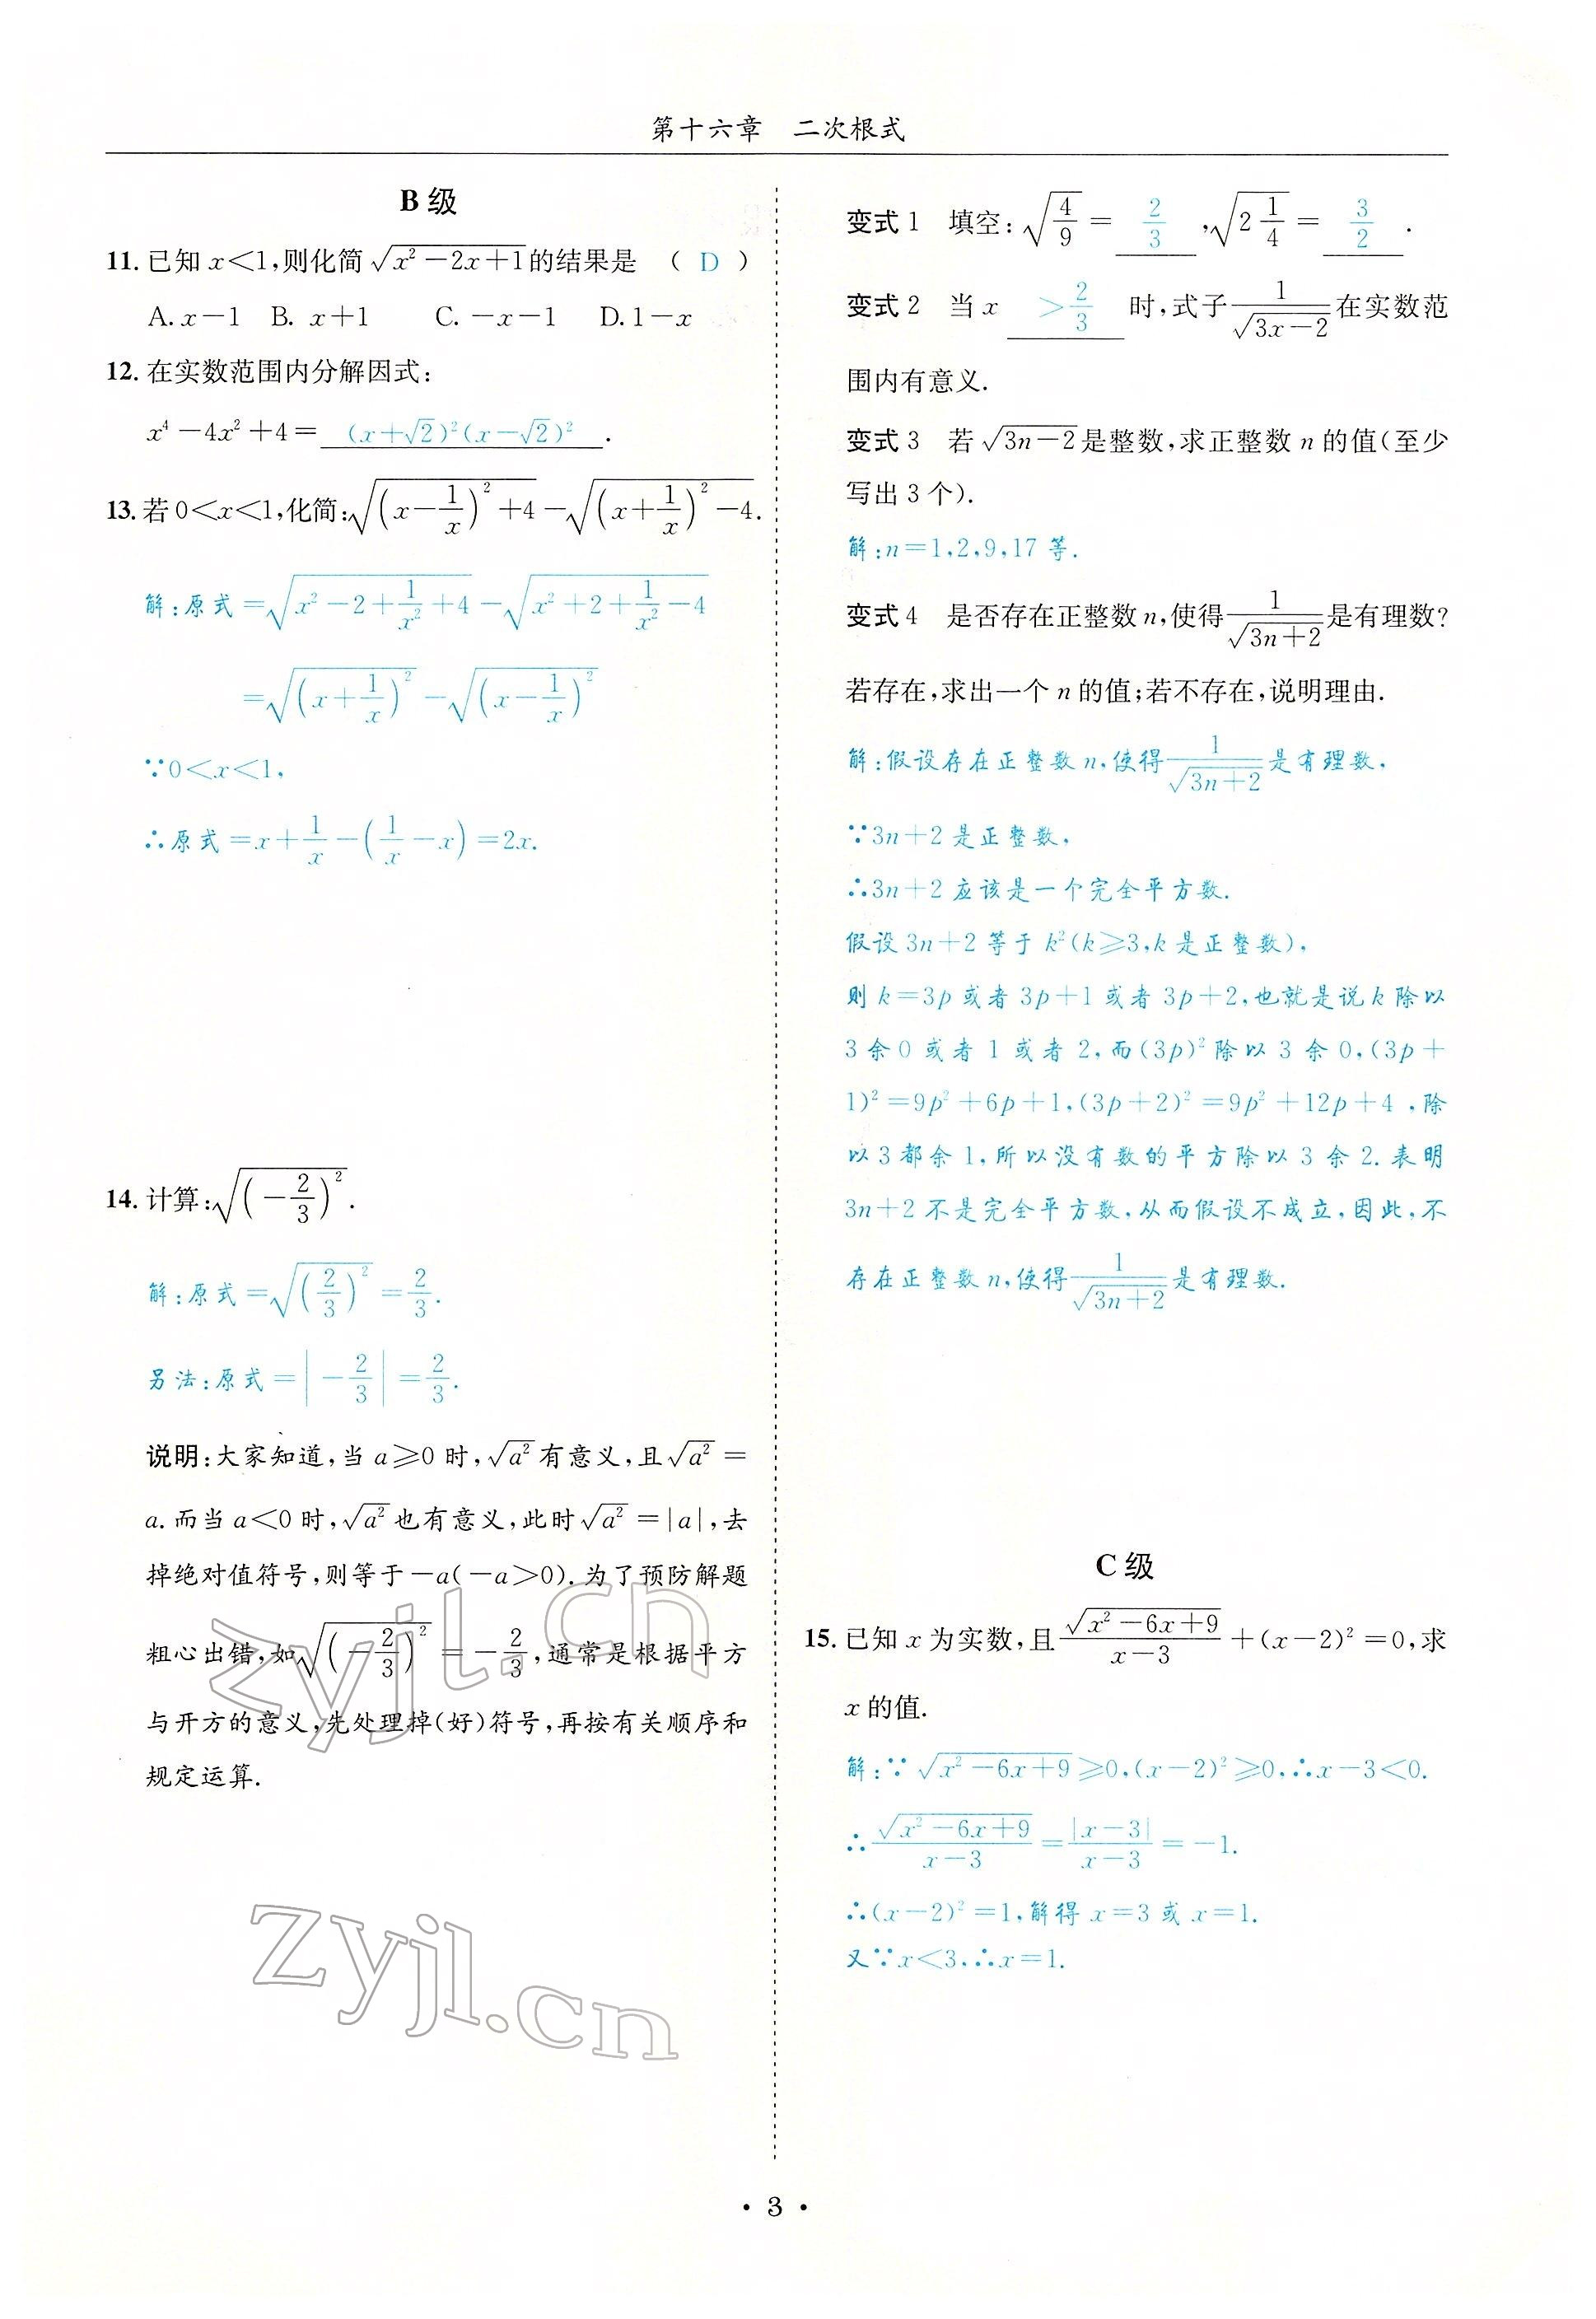 第十六章　二次根式
B级
11. 已知 x＜1,则化简 √(x²－2x＋1) 的结果是 （ D ）
A. x－1  B. x＋1  C. －x－1  D. 1－x
12. 在实数范围内分解因式:
x⁴－4x²＋4＝ (x＋√2)²(x－√2)² .
13. 若 0＜x＜1,化简: √((x－1/x)²＋4)－√((x＋1/x)²－4).
解:原式＝√(x²－2＋1/x²＋4)－√(x²＋2＋1/x²－4)
＝√((x＋1/x)²)－√((x－1/x)²)
∵0＜x＜1,
∴原式＝x＋1/x－(1/x－x)＝2x.
14. 计算: √((－2/3)²).
解:原式＝√((2/3)²)＝2/3.
另法:原式＝|－2/3|＝2/3.
说明:大家知道,当 a≥0 时,√(a²) 有意义,且 √(a²)＝
a. 而当 a＜0 时,√(a²) 也有意义,此时 √(a²)＝|a|,去
掉绝对值符号,则等于－a(－a＞0). 为了预防解题
粗心出错,如 √((－2/3)²)＝－2/3,通常是根据平方
与开方的意义,先处理掉(好)符号,再按有关顺序和
规定运算.
变式 1　填空: √(4/9)＝ 2/3 ,√(2 1/4)＝ 3/2 .
变式 2　当 x ＞2/3 时,式子 1/√(3x－2) 在实数范
围内有意义.
变式 3　若 √(3n－2) 是整数,求正整数 n 的值(至少
写出 3 个).
解:n＝1,2,9,17 等.
变式 4　是否存在正整数 n,使得 1/√(3n＋2) 是有理数?
若存在,求出一个 n 的值;若不存在,说明理由.
解:假设存在正整数 n,使得 1/√(3n＋2) 是有理数,
∵3n＋2 是正整数,
∴3n＋2 应该是一个完全平方数.
假设 3n＋2 等于 k²(k≥3,k 是正整数),
则 k＝3p 或者 3p＋1 或者 3p＋2,也就是说 k 除以
3 余 0 或者 1 或者 2,而(3p)² 除以 3 余 0,(3p＋
1)²＝9p²＋6p＋1,(3p＋2)²＝9p²＋12p＋4 ,除
以 3 都余 1,所以没有数的平方除以 3 余 2. 表明
3n＋2 不是完全平方数,从而假设不成立,因此,不
存在正整数 n,使得 1/√(3n＋2) 是有理数.
C级
15. 已知 x 为实数,且 √(x²－6x＋9)/(x－3)＋(x－2)²＝0,求
x 的值.
解:∵√(x²－6x＋9)≥0,(x－2)²≥0,∴x－3＜0.
∴√(x²－6x＋9)/(x－3)＝|x－3|/(x－3)＝－1.
∴(x－2)²＝1,解得 x＝3 或 x＝1.
又∵x＜3,∴x＝1.
zyjl.cn
zyjl.cn
• 3 •